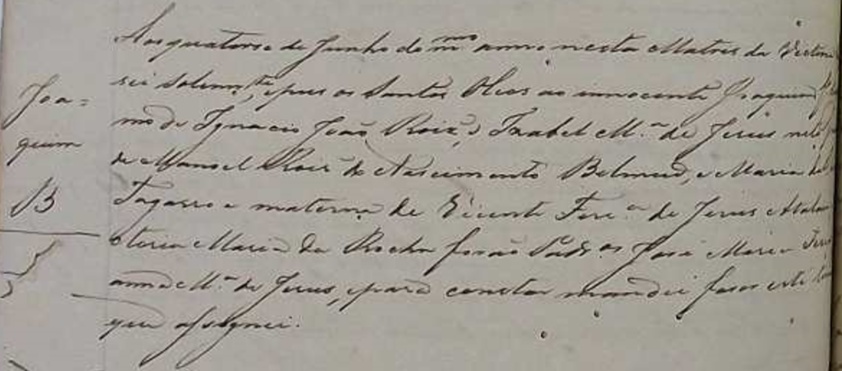 Joa=
quim
B
Aos quatorse de Junho do mmo anno nesta Matris da Victoria
sei Solemte, e pus os Santos Oleos ao innocente Joaquim
mo de Ignacio João Roiz, e Izabel Ma de Jesus neto
de Manoel Roiz do Nascimento Belmud, e Maria do
e materno de Vicente Ferra de Jesus e
Maria da Rocha forão Padros José Maria
anna Ma de Jesus, e para constar mandei faser este
que assignei.